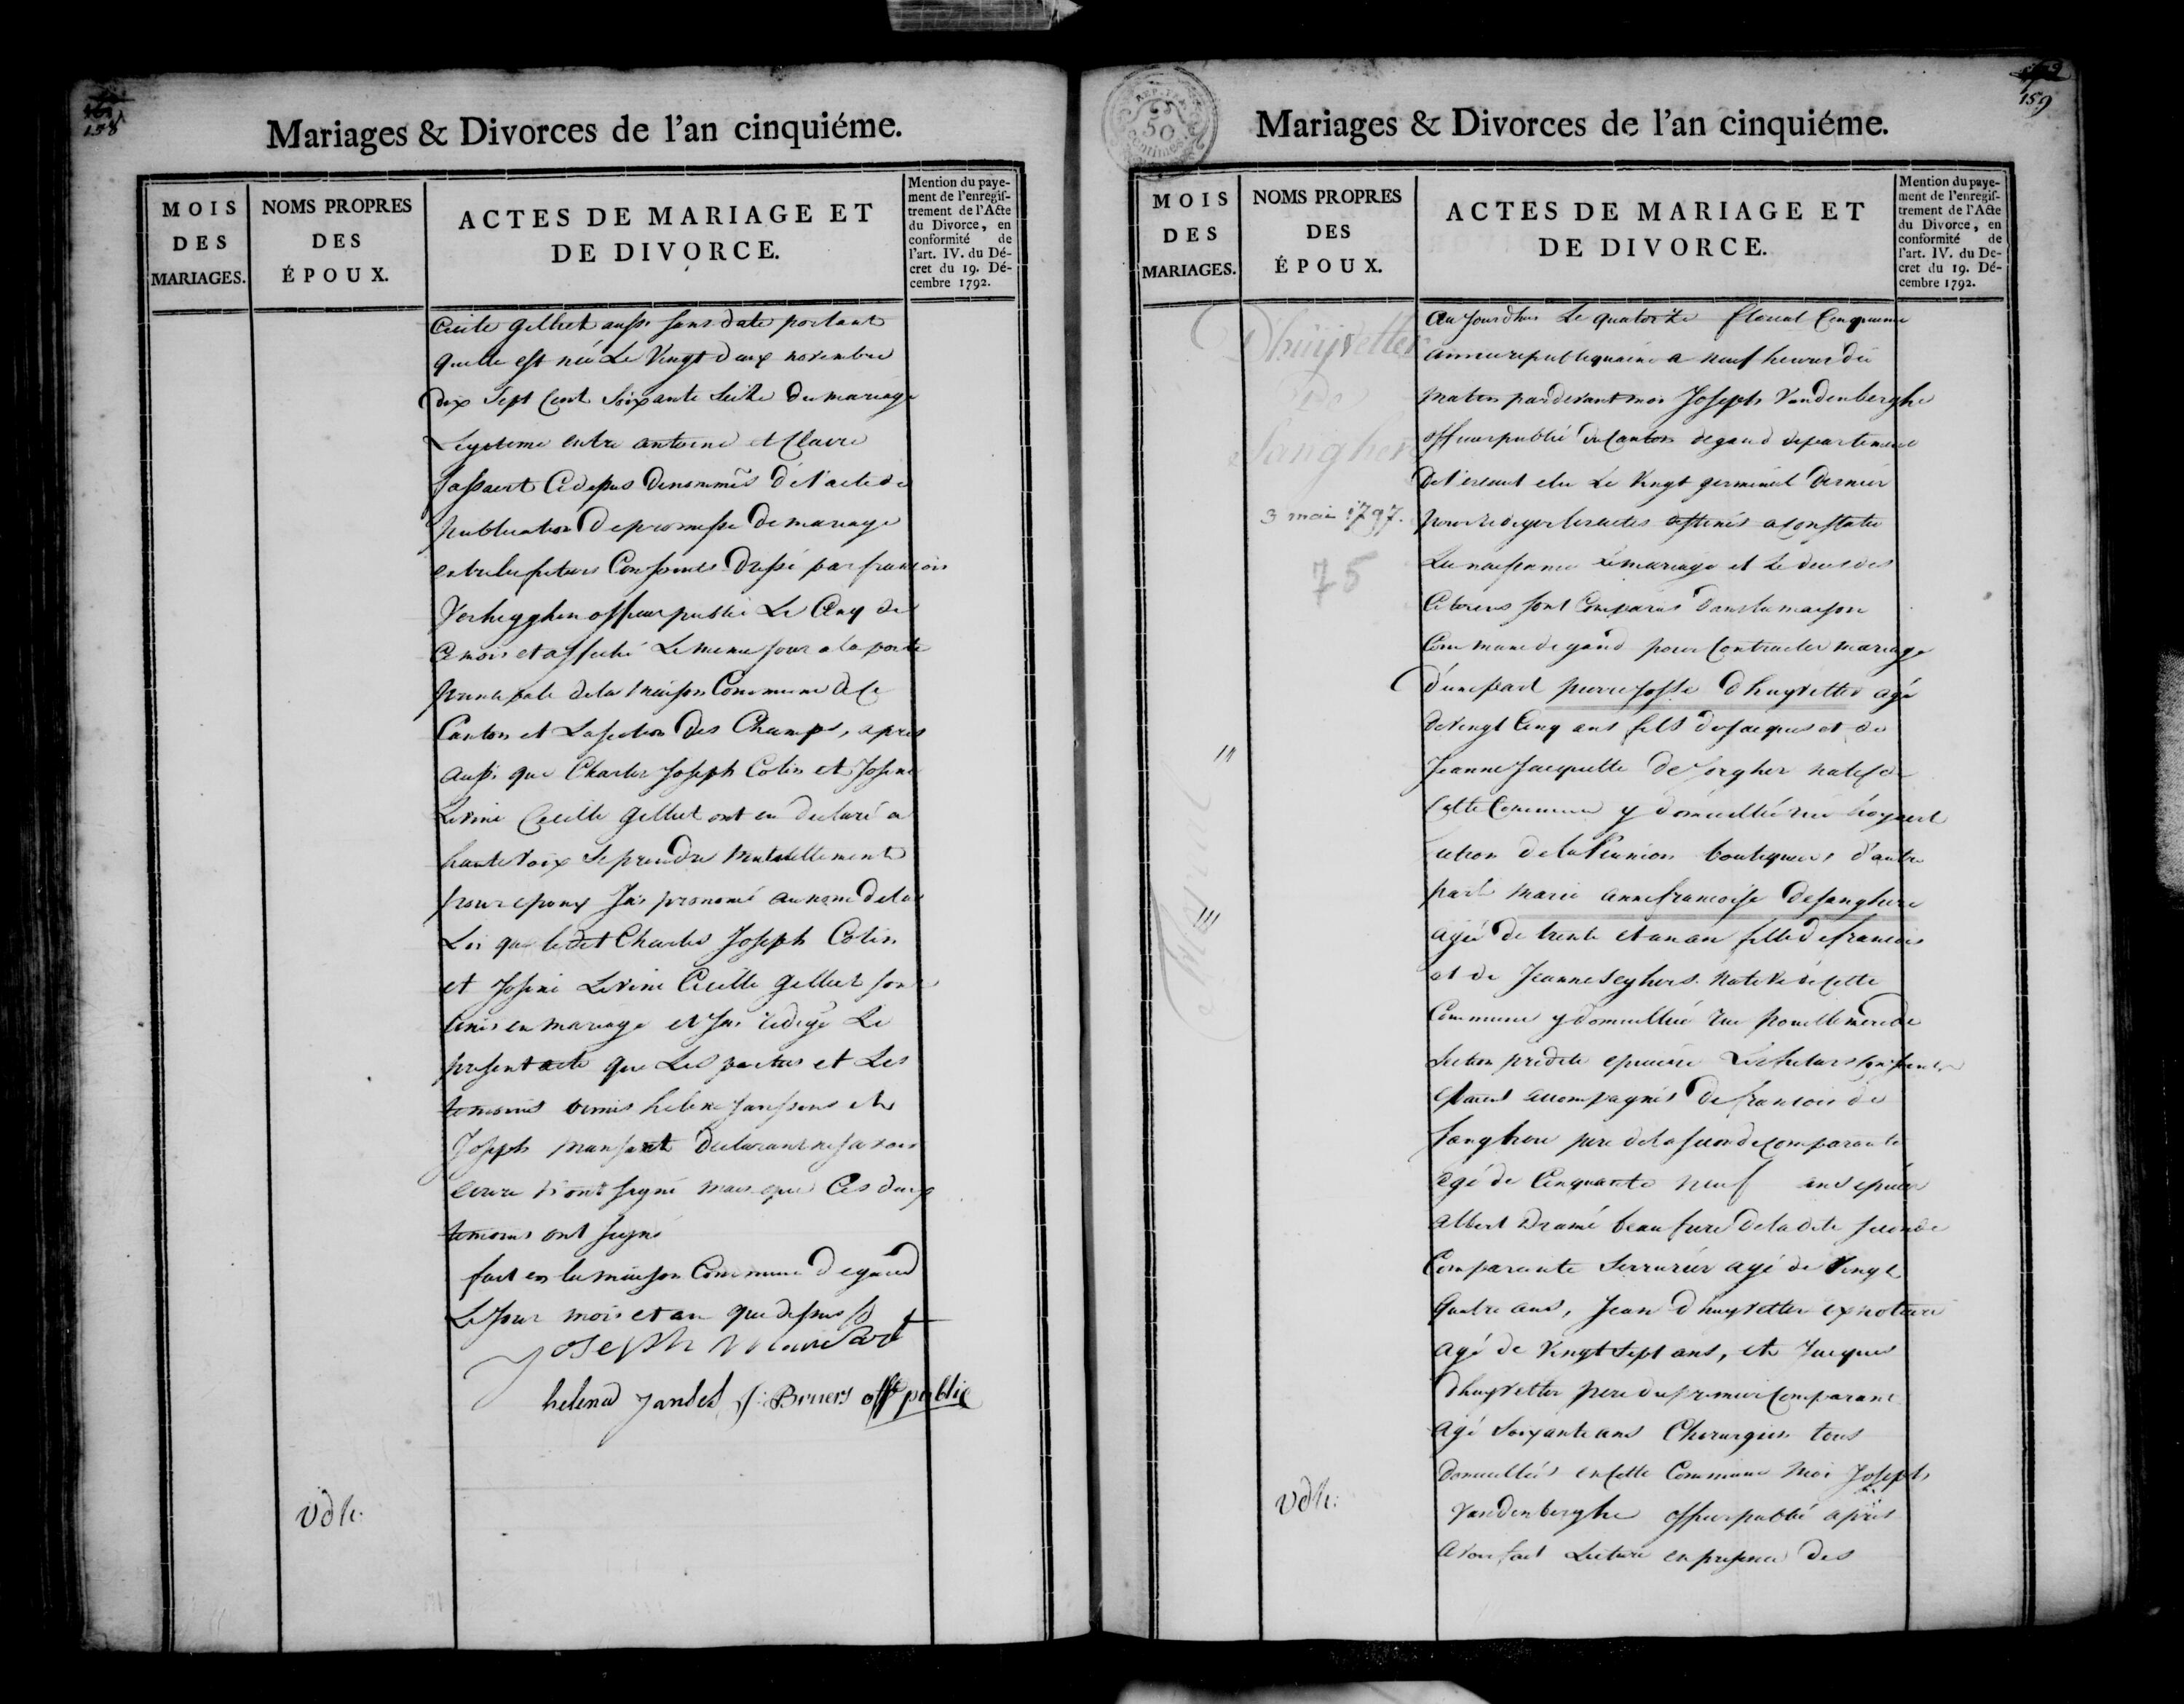 158
Mariages & Divorces de l'an cinquiéme.
MOIS
DES
MARIAGES.
NOMS PROPRES
DES
ÉPOUX.
ACTES DE MARIAGE ET
DE DIVORCE.
Mention du paye-
ment de l'enregis-
trement de l'Acte
du Divorce, en
conformité de
l'art. IV. du Dé-
cret du 19. Dé-
cembre 1792.
Cecile Gelluet aussi sans date portant
quelle est née Le Vingt deux novembre
dix Sept Cent Soixante Seize du mariage
Legeteme entre antoine et Claire
Cidessus denommés de l'acte de
publication de promesse de mariage
entre les futurs Conjoints dressé par francois
Verhegghen officier public Le Cinq de
Ce mois et affiché Le meme jour a la porte
principale de la maison Commune de Ce
Canton et La section des Champs, apres
aussi que Charles Joseph Colin et Josine
Livine Cecille Gelluet ont eu declaré a
haute voix Se prendre mutuellement
pour epoux J'ai prononcé au nom de la
Loi que ledit Charles Joseph Colin
et Josine Livine Cicille Gelluet sont
unis en mariage et J'ai redigé Le
present acte que Les parties et Les
temoins moins helene Janssens et
Joseph declarant ne savoir
ecrire n'ont signé mais que Ces deux
temoins ont signé
fait en la maison Commune de gand
Le Jour mois et an que dessus
Joseph
helena Jansed f: Bruers offr public
Vdh:
159
Mariages & Divorces de l'an cinquiéme.
MOIS
DES
MARIAGES.
NOMS PROPRES
DES
ÉPOUX.
ACTES DE MARIAGE ET
DE DIVORCE.
Mention du paye-
ment de l'enregis-
trement de l'Acte
du Divorce, en
conformité de
l'art. IV. du De-
cret du 19. Dé-
cembre 1792.
Dhuyvetter
De
Sanghere
3 mai 1797.
75
Au Jourdhui Le quatorze floreal Cinquieme
annee republiquaine a neuf heures du
matin pardevant moi Joseph Vandenberghe
officier public du Canton de gand departement
De l'escaut elu Le Vingt germinal dernier
pour rediger les actes destinés a constater
Les naissances Le mariage et Le deces des
Citoiens sont Comparus dans la maison
Commune de gand pour Contracter mariage
d'une part pierre Josse dhuyvetter agé
de vingt Cinq ans fils de Jacques et de
Jeanne Jacquette de Sorgher natif de
Cette Commune y domicilié rue
section de la Reunion boutiquier d'autre
part marie anne francoise desanghere
agée de trente et un an fille de francois
et de Jeanne Seghers Native de Cette
Commune y domiciliée rue
section predite Les futurs Conjoints
etant accompagnés de francois de
Sanghere pere de la seconde comparante
agé de Cinquante neuf ans
albert Dramé beau frere de la dite seconde
Comparante Serrurier agé de Vingt
quatre ans, Jean dhuyvetter ex notaire
agé de Vingt Sept ans, et Jacques
dhuyvetter pere du premier Comparant
agé Soixante ans Chirurgien tous
domiciliés en Cette Commune Moi Joseph
Vandenberghe officier public apres
avoir fait Lecture en presence des
Vdh: